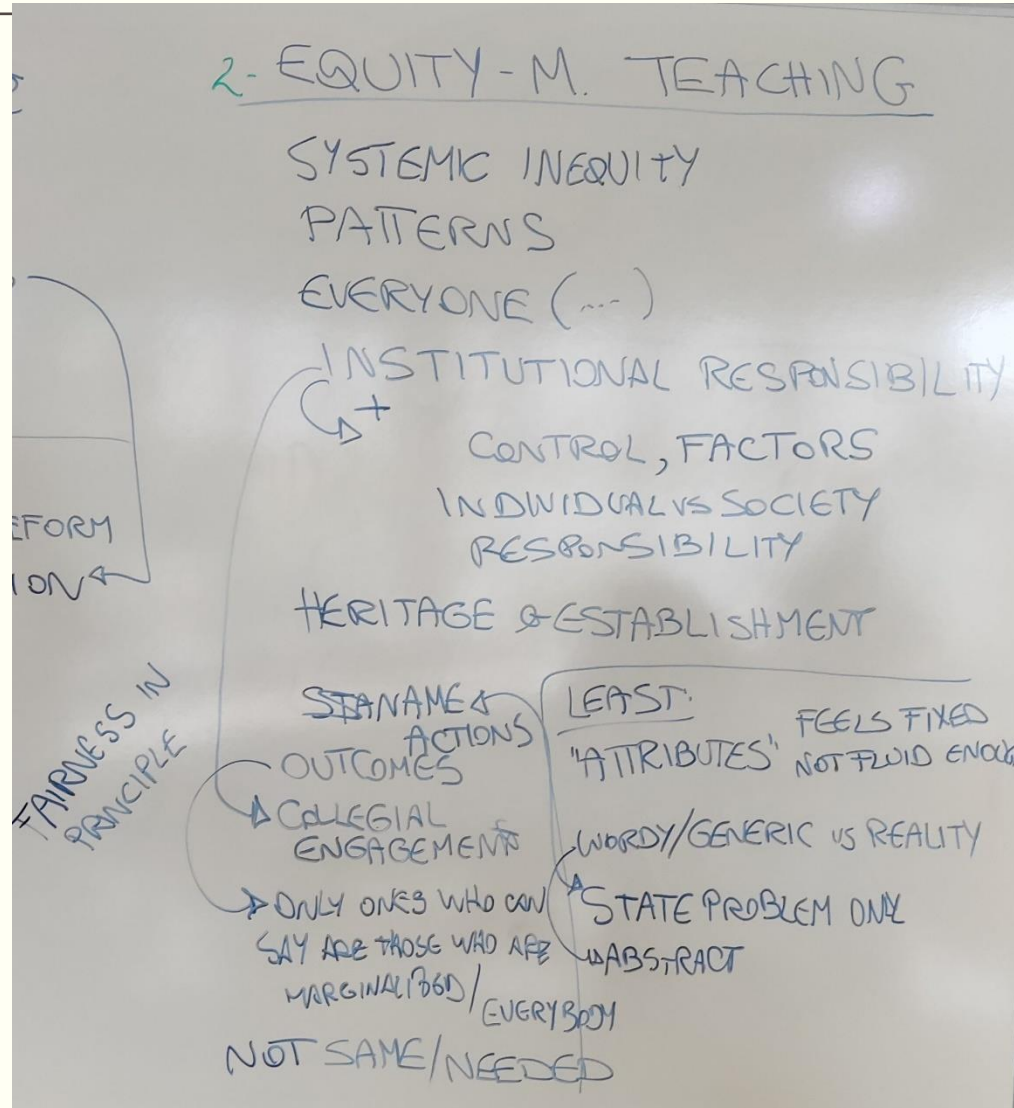 2- EQUITY - M. TEACHING
SYSTEMIC INEQUITY
PATTERNS
EVERYONE (...)
INSTITUTIONAL RESPONSIBILITY
+
CONTROL, FACTORS
INDIVIDUAL VS SOCIETY
RESPONSIBILITY
EFORM
ION
HERITAGE & ESTABLISHMENT
FAIRNESS IN
PRINCIPLE
NAME
ACTIONS
OUTCOMES
COLLEGIAL
ENGAGEMENT
ONLY ONES WHO CAN
SAY ARE THOSE WHO ARE
MARGINALISED/
EVERYBODY
NOT SAME/NEEDED
LEAST:
"ATTRIBUTES"
FEELS FIXED
NOT FLUID ENOUG
WORDY/GENERIC VS REALITY
STATE PROBLEM ONLY
ABSTRACT